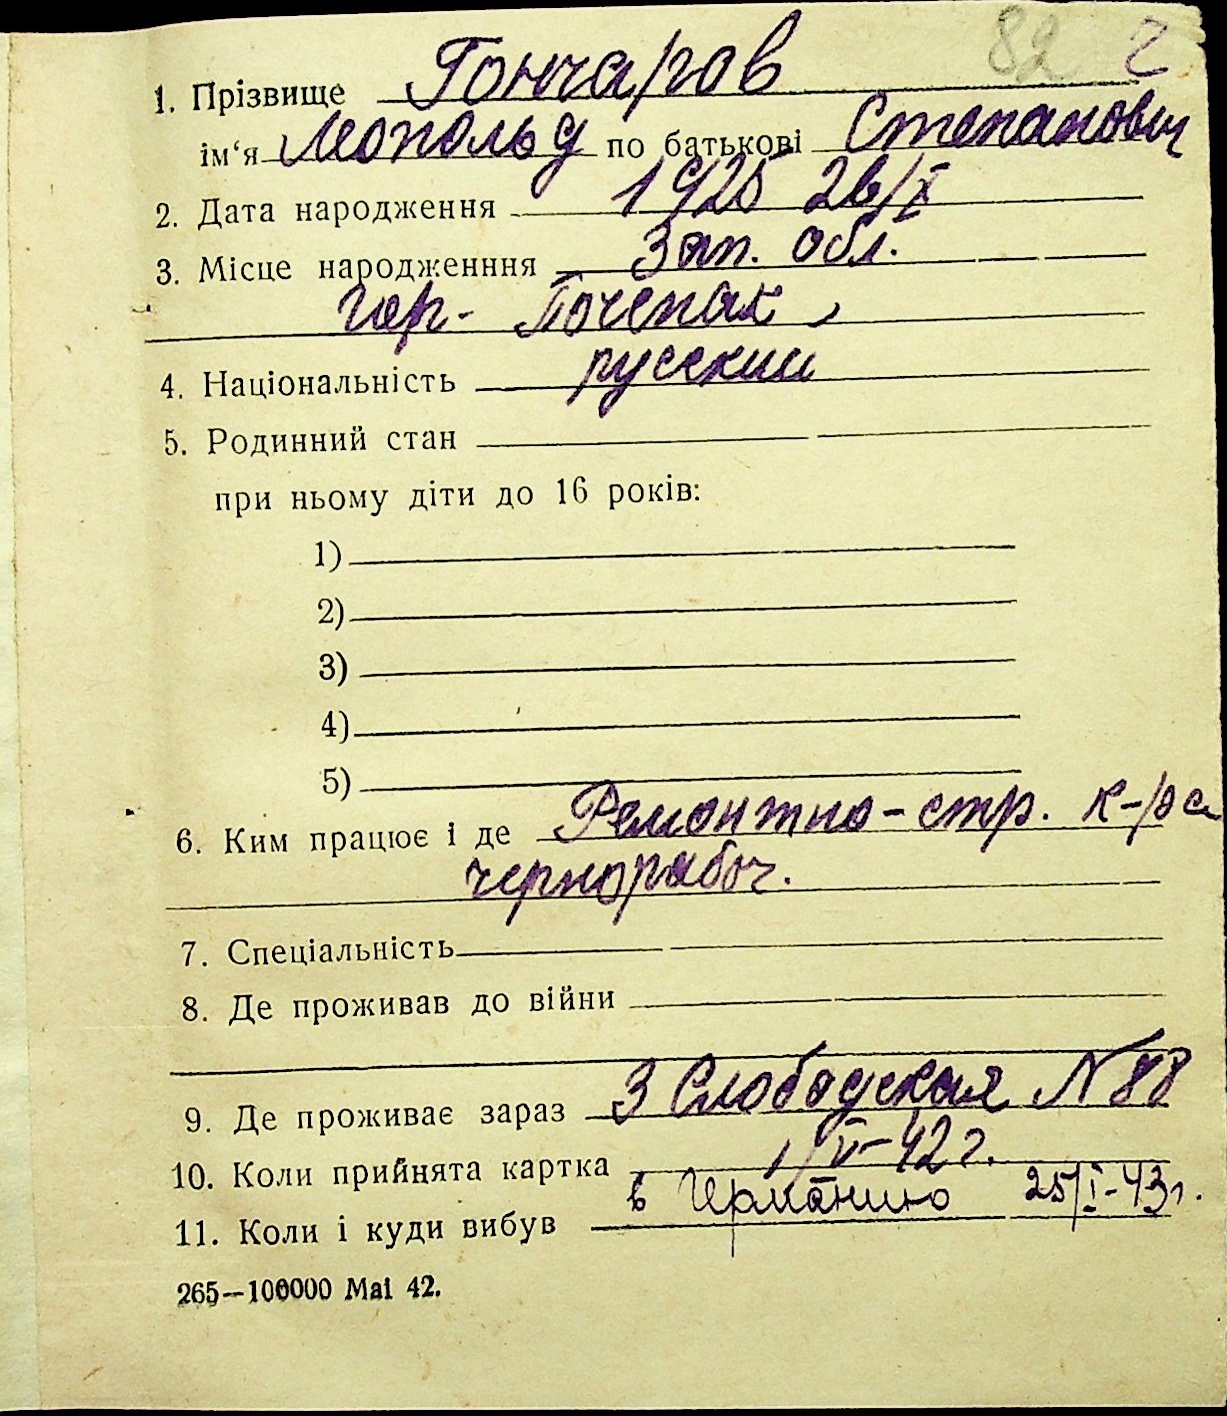 82 г
1. Прізвище Гончаров
ім‘я Леопольд по батькові Степанович
2. Дата народження 1925 26/X
3. Місце народженння Зап. обл.
гор- Почепак
4. Національність русский
5. Родинний стан
при ньому діти до 16 років:
1)
2)
3)
4)
5)
6. Ким працює і де Ремонтно-стр. к-ра
чернорабоч.
7. Спеціальність
8. Де проживав до війни
9. Де проживає зараз 3 Слободская N 88
10. Коли прийнята картка 1/V-42 г.
11. Коли і куди вибув в Германию 25/I-43г.
265—100000 Mai 42.